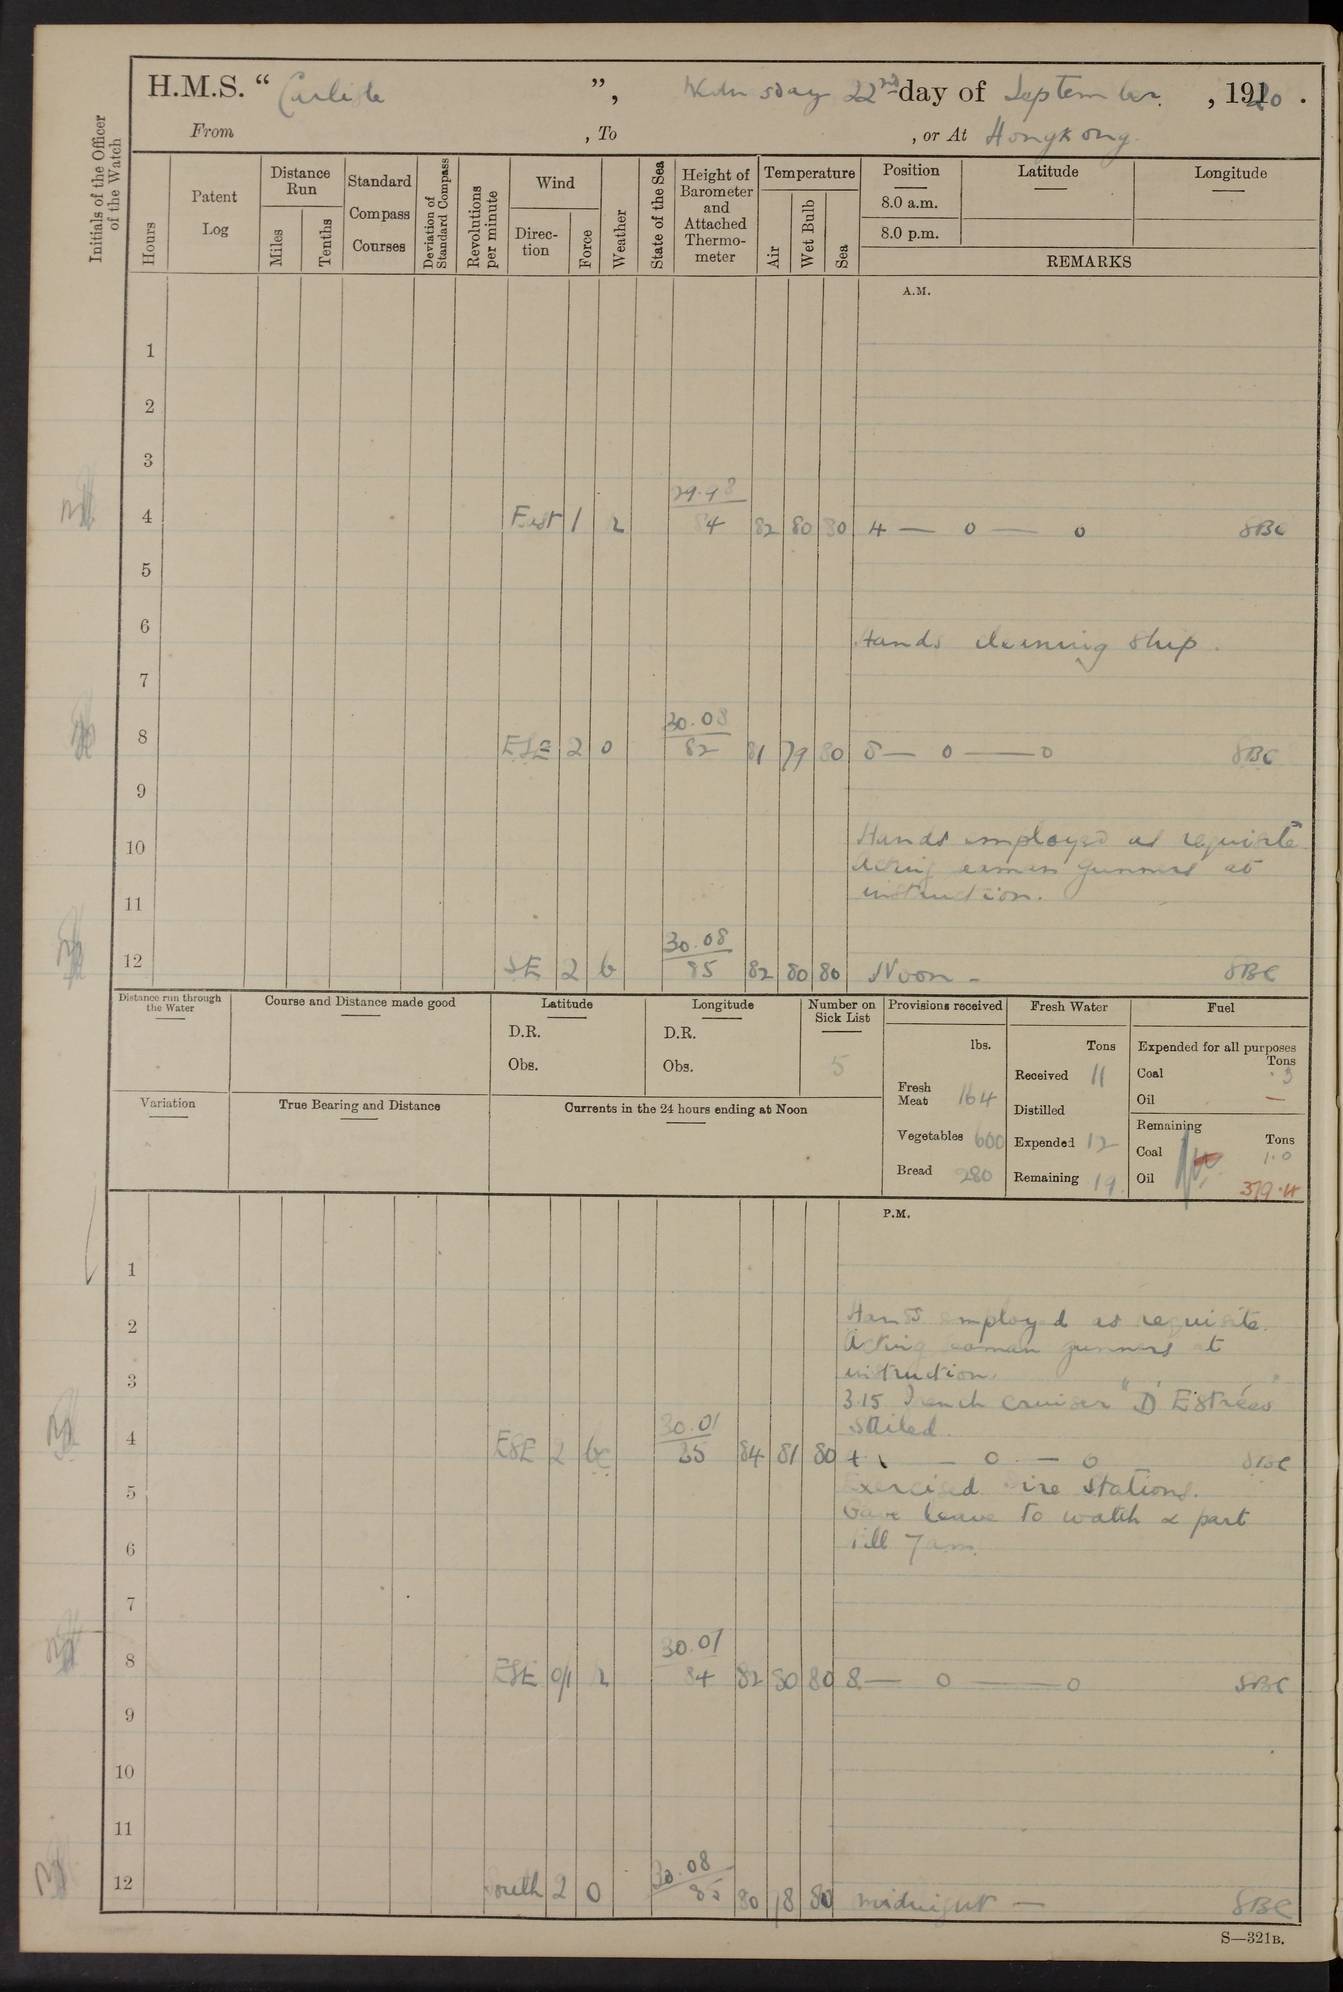 H.M.S. “ Carlisle ”, Wednesday 22nd day of September , 1920 .
From , To , or At Hongkong.
Initials of the Officer of the Watch
Hours
Patent Log
Distance Run
Miles
Tenths
Standard Compass Courses
Deviation of Standard Compass
Revolutions per minute
Wind
Direc-tion
Force
Weather
State of the Sea
Height of Barometer and Attached Thermo-meter
Temperature
Air
Wet Bulb
Sea
Position
8.0 a.m.
8.0 p.m.
Latitude
Longitude
REMARKS
A.M.
1
2
3
29.98
4 East 1 84 82 80 80 4 — 0 — 0 SBC
5
6
Hands cleaning ship.
7
30.08
8 ESE 2 0 82 81 79 80 8 — 0 — 0 SBC
9
10 Hands employed as requisite
Acting seaman gunners at
11 instruction.
30.08
12 SE 2 b 85 82 80 80 Noon - SBC
Distance run through the Water
Course and Distance made good
Latitude
D.R.
Obs.
Longitude
D.R.
Obs.
Number on Sick List
5
Provisions received
lbs.
Fresh Meat 164
Vegetables 600
Bread 280
Fresh Water
Tons
Received 11
Distilled
Expended 12
Remaining 19
Fuel
Expended for all purposes
Tons
Coal .3
Oil —
Remaining
Tons
Coal 1.0
Oil 379.4
Variation
True Bearing and Distance
Currents in the 24 hours ending at Noon
P.M.
1
2 Hands employed as requisite.
Acting seaman gunners at
3 instruction.
3.15 French cruiser "D'Estrées"
sailed.
30.01
4 ESE 2 bc 85 84 81 80 4 — 0 — 0 SBC
5 Exercised Fire Stations.
Gave leave to watch & part
6 till 7am.
7
30.01
8 ESE 0/1 84 82 80 80 8 — 0 — 0 SBC
9
10
11
30.08
12 South 2 0 85 80 80 midnight — SBC
S—321B.